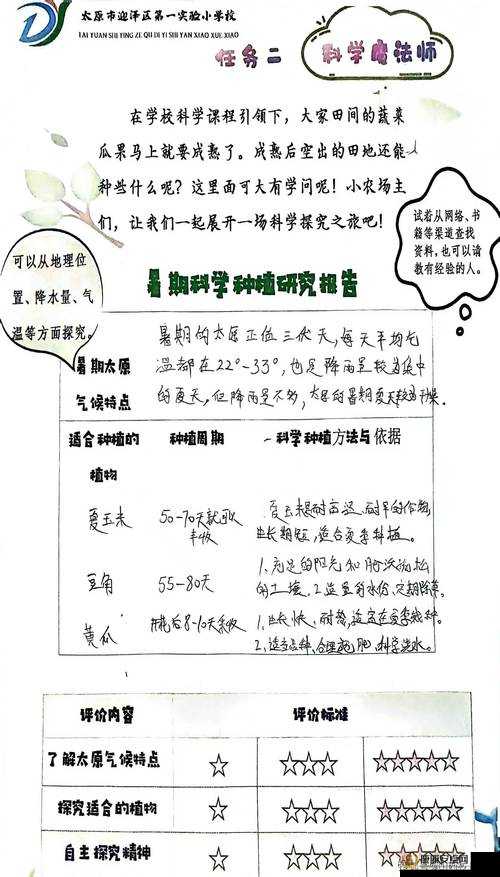 太原市迎泽区第一实验小学校
TAI YUAN SHI YING ZE QU DI YI SHI YAN XIAO XUE XIAO
任务二
科学魔法师
在学校科学课程引领下，大家田间的蔬菜
瓜果马上就要成熟了。成熟后空出的田地还能
种些什么呢？这里面可大有学问呢！小农场主
们，让我们一起展开一场科学探究之旅吧！
试着从网络、书
籍等渠道查找
资料，也可以请
教有经验的人。
可以从地理位
置、降水量、气
温等方面探究。
暑期科学种植研究报告
暑期太原
气候特点
暑期的太原正值三伏天，每天平均气
温都在22°-33°，也是降雨量较为集中
的夏天。但降雨量不多，太原的暑期夏天较为干燥。
适合种植的
植物
种植周期
科学种植方法与依据
夏玉米
50-70天就可以
丰收
夏玉米是耐高温、耐旱的作物，
生长期短，适合夏季种植。
豆角
55-80天
1、充足的阳光和肥沃疏松
的土壤。2、适量的水份，定期除草。
黄瓜
开花后8-10天采收
1、生长快、耐热，适宜在夏季栽种。
2、适当品种、合理施肥、科学浇水。
评价内容
评价标准
了解太原气候特点
☆
☆☆☆
☆☆☆☆☆
探究适合的植物
☆
☆☆☆
☆☆☆☆☆
自主探究精神
☆
☆☆☆
☆☆☆☆☆